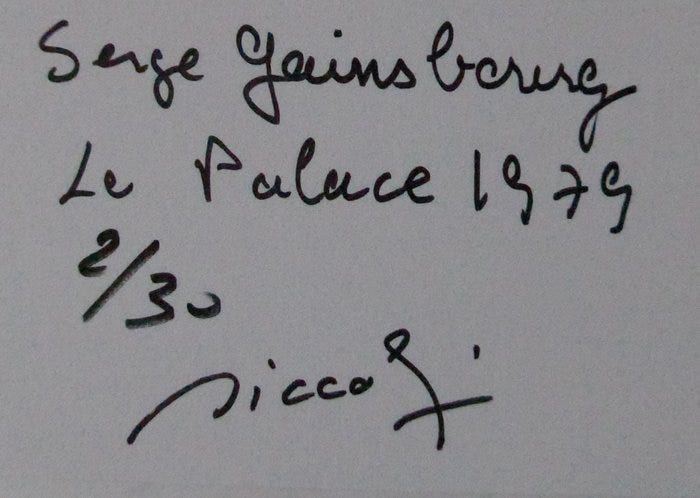 Serge Gainsbourg
Le Palace 1979
2/30
Piccoli